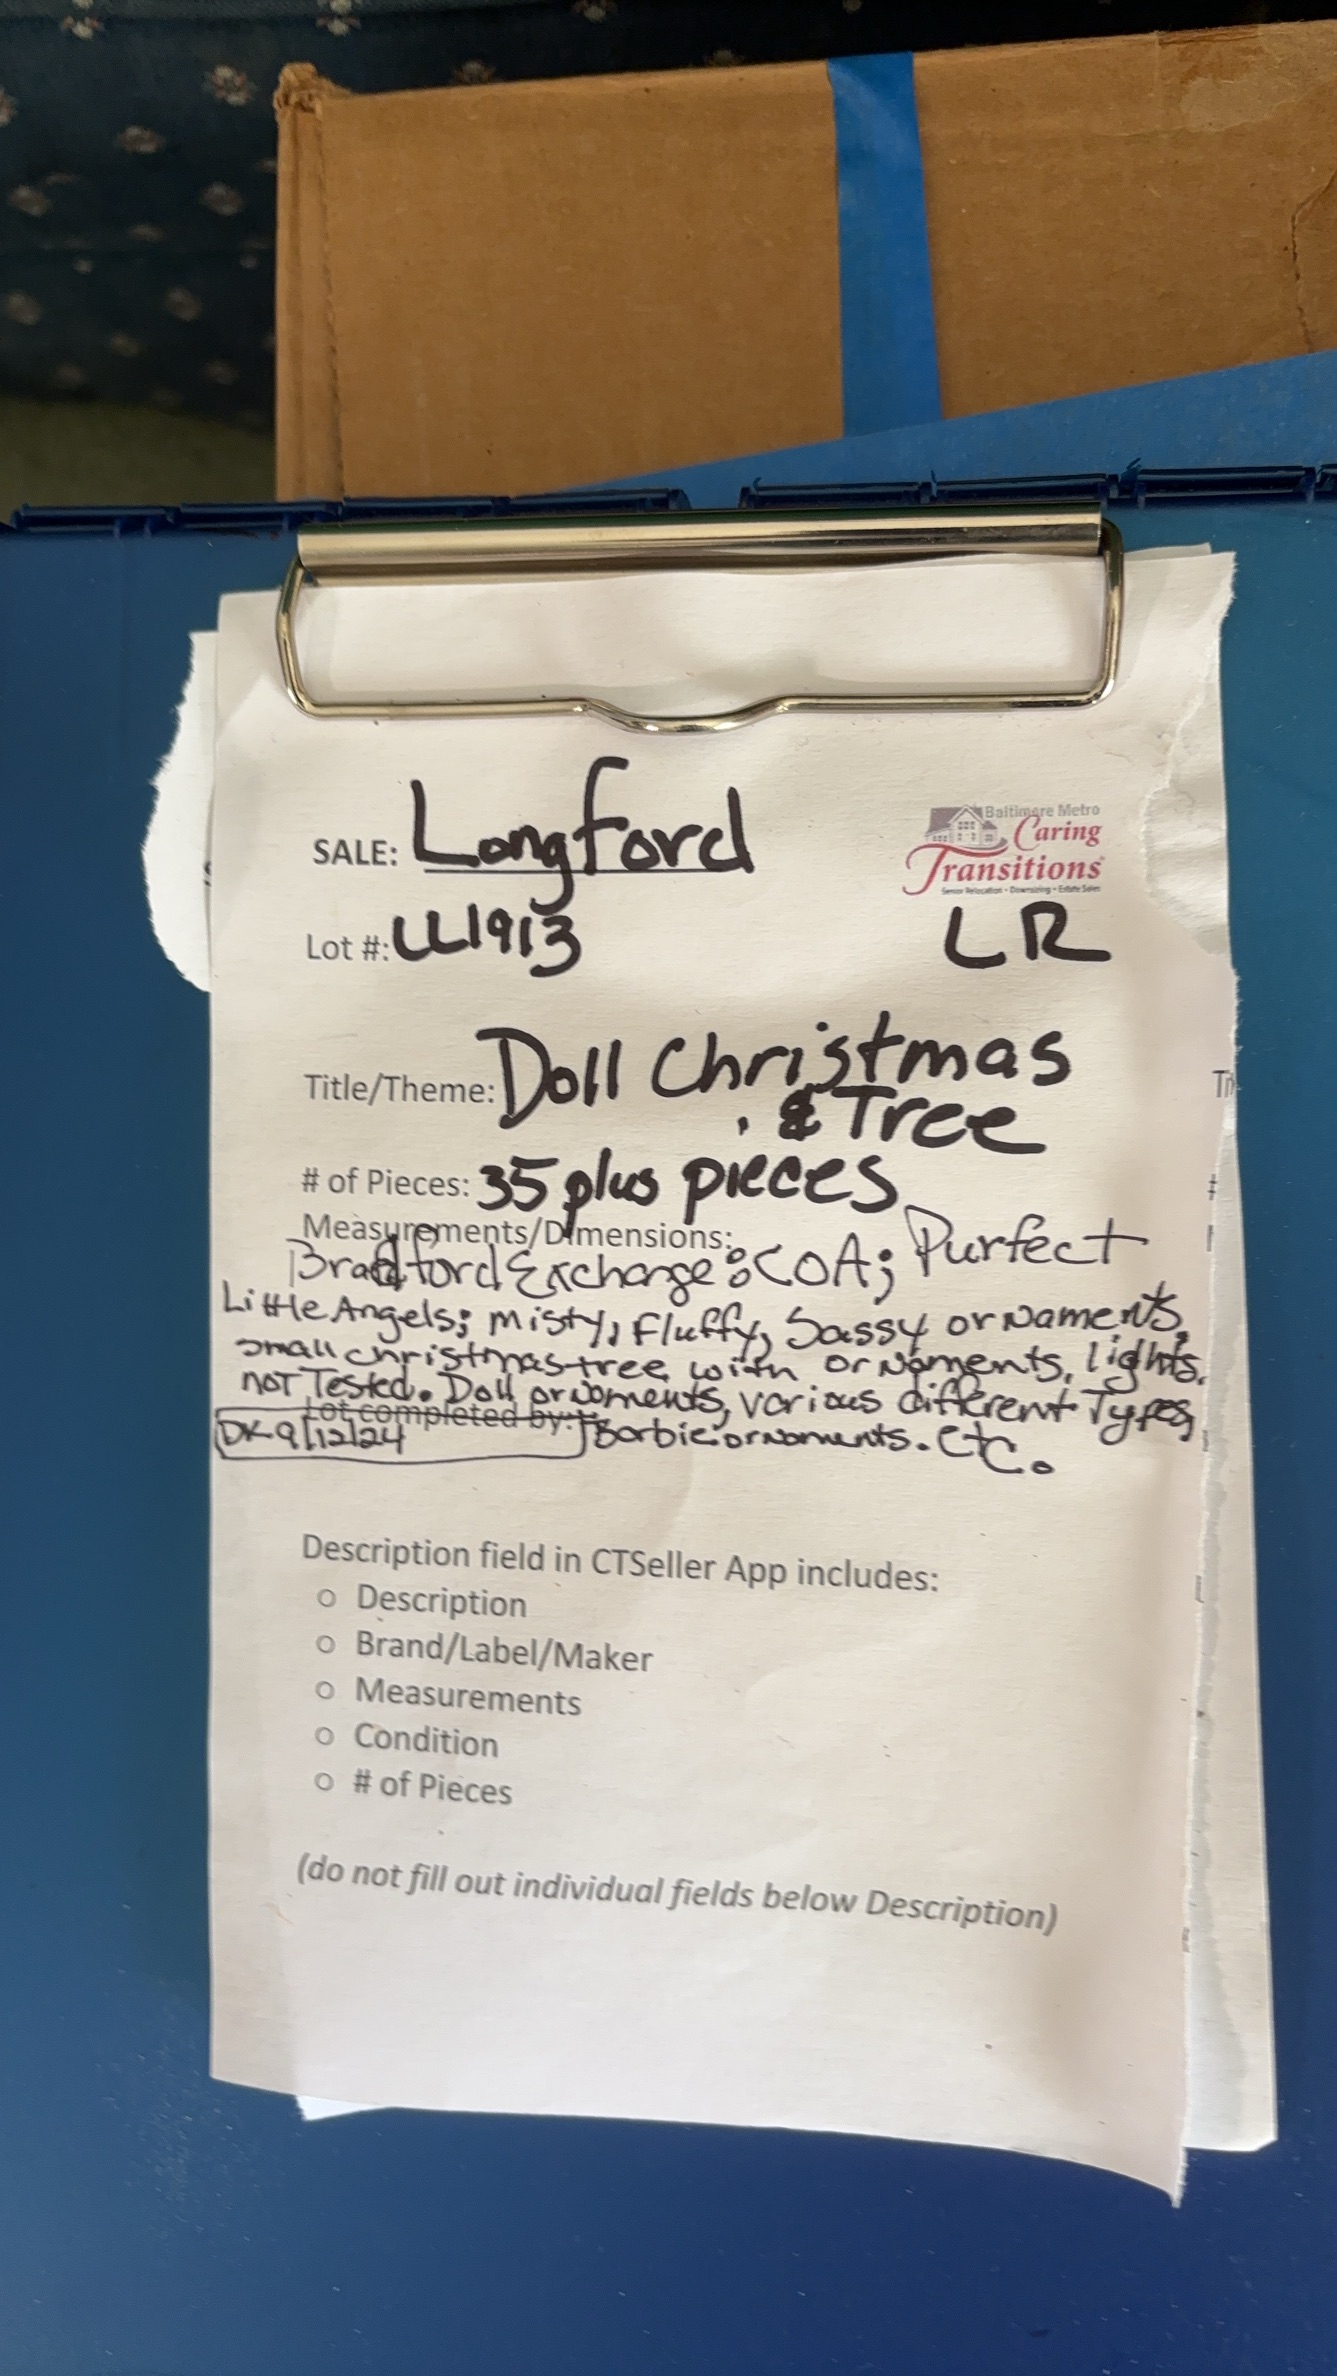 SALE: Longford
Baltimore Metro
Caring
Transitions
Senior Relocation • Downsizing • Estate Sales
Lot #: LL1913
LR
Title/Theme: Doll Christmas
& Tree
# of Pieces: 35 plus pieces
Measurements/Dimensions:
Bradford Exchange: COA; Purfect
Little Angels; Misty, Fluffy, Sassy ornaments,
small christmas tree with ornaments, lights.
not Tested. Doll ornaments, various different Types,
Lot completed by: Barbie ornaments. etc.
DK 9/12/24
Description field in CTSeller App includes:
○ Description
○ Brand/Label/Maker
○ Measurements
○ Condition
○ # of Pieces
(do not fill out individual fields below Description)